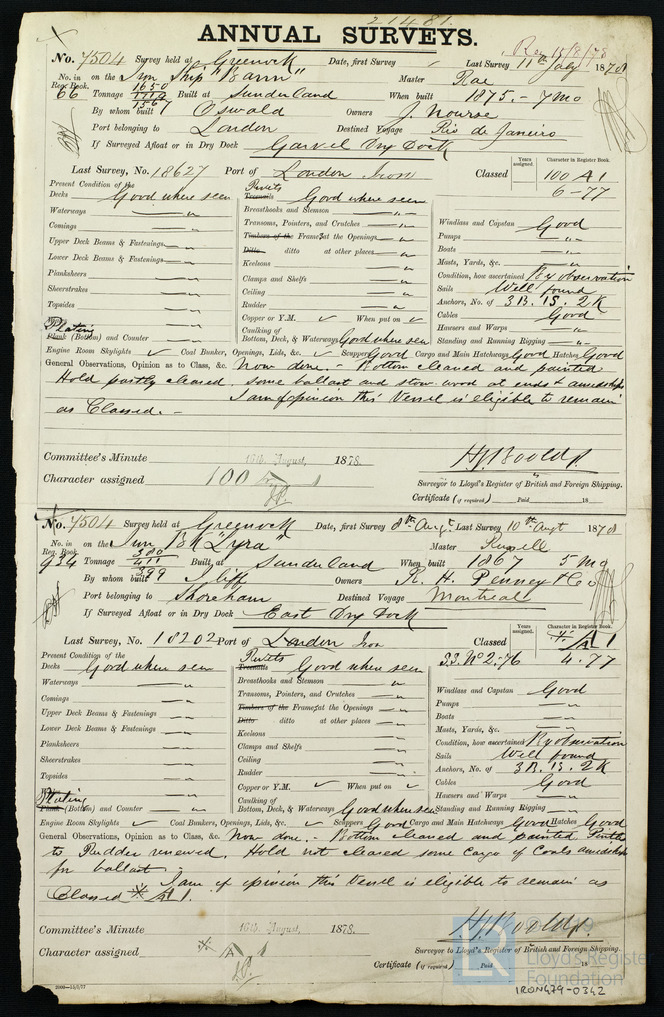 21481.
ANNUAL SURVEYS.
Rec 15/8/78
No. 7504 Survey held at Greenock Date, first Survey Last Survey 11th July 1878
No. in Reg. Book. 66 on the Iron Ship "Bann" Master Rae
Tonnage 1650 1719 1567 Built at Sunderland When built 1875. - 7 Mo
By whom built Oswald Owners J. Nourse
Port belonging to London Destined Voyage Rio de Janeiro
If Surveyed Afloat or in Dry Dock Garvel Dry Dock
Last Survey, No. 18627 Port of London Iron Classed Years assigned. Character in Register Book. 100 A1
6-77
Present Condition of the
Decks Good where seen
Waterways "
Comings "
Upper Deck Beams & Fastenings "
Lower Deck Beams & Fastenings "
Planksheers "
Sheerstrakes "
Topsides "
Plating
Plank (Bottom) and Counter "
Rivets
Treenails Good where seen
Breasthooks and Stemson "
Transoms, Pointers, and Crutches "
Timbers of the Frames at the Openings "
Ditto ditto at other places "
Keelsons "
Clamps and Shelfs "
Ceiling "
Rudder "
Copper or Y.M. ✓ When put on ✓
Caulking of
Bottom, Deck, & Waterways Good where seen
Windlass and Capstan Good
Pumps "
Boats "
Masts, Yards, &c. "
Condition, how ascertained By observation
Sails Well found
Anchors, No. of 3B. 1S. 2K
Cables Good
Hawsers and Warps "
Standing and Running Rigging "
Engine Room Skylights ✓ Coal Bunker, Openings, Lids, &c. ✓ Scuppers Good Cargo and Main Hatchways Good Hatches Good
General Observations, Opinion as to Class, &c. Now done. - Bottom cleaned and painted
Hold partly cleared. some ballast and stow wood at ends & amidships
I am of opinion this Vessel is eligible to remain
as Classed. -
Committee's Minute 16th August, 1878.
Character assigned 100 A 1
Surveyor to Lloyd's Register of British and Foreign Shipping.
Certificate (if required) Paid 18
No. 7504 Survey held at Greenock Date, first Survey 8th Augt Last Survey 10th Augt 1878
No. in Reg. Book. 934 on the Iron Bk "Lyra" Master Russell
Tonnage 380 411 399 Built at Sunderland When built 1867 5 Mo
By whom built Iliff Owners R. H. Penney & Co
Port belonging to Shoreham Destined Voyage Montreal
If Surveyed Afloat or in Dry Dock East Dry Dock
Last Survey, No. 18202 Port of London Iron Classed Years assigned. Character in Register Book. A 1
S.S. No 2. 76 4.77
Present Condition of the
Decks Good where seen
Waterways "
Comings "
Upper Deck Beams & Fastenings "
Lower Deck Beams & Fastenings "
Planksheers "
Sheerstrakes "
Topsides "
Plating
Plank (Bottom) and Counter "
Rivets
Treenails Good where seen
Breasthooks and Stemson "
Transoms, Pointers, and Crutches "
Timbers of the Frames at the Openings "
Ditto ditto at other places "
Keelsons "
Clamps and Shelfs "
Ceiling "
Rudder "
Copper or Y.M. ✓ When put on ✓
Caulking of
Bottom, Deck, & Waterways Good where seen
Windlass and Capstan Good
Pumps "
Boats "
Masts, Yards, &c. "
Condition, how ascertained By observation
Sails Well found
Anchors, No. of 3B. 1S. 2K
Cables Good
Hawsers and Warps "
Standing and Running Rigging "
Engine Room Skylights ✓ Coal Bunkers, Openings, Lids, &c. ✓ Scuppers Good Cargo and Main Hatchways Good Hatches Good
General Observations, Opinion as to Class, &c. Now done. - Bottom cleaned and painted Pintles
to Rudder renewed. Hold not cleared some cargo of Coals amidships
for ballast
I am of opinion this Vessel is eligible to remain as
Classed A 1.
Committee's Minute 16th August, 1878.
Character assigned A 1
Surveyor to Lloyd's Register of British and Foreign Shipping.
Certificate (if required) Paid 18
Lloyd's Register
Foundation
IRON479-0342